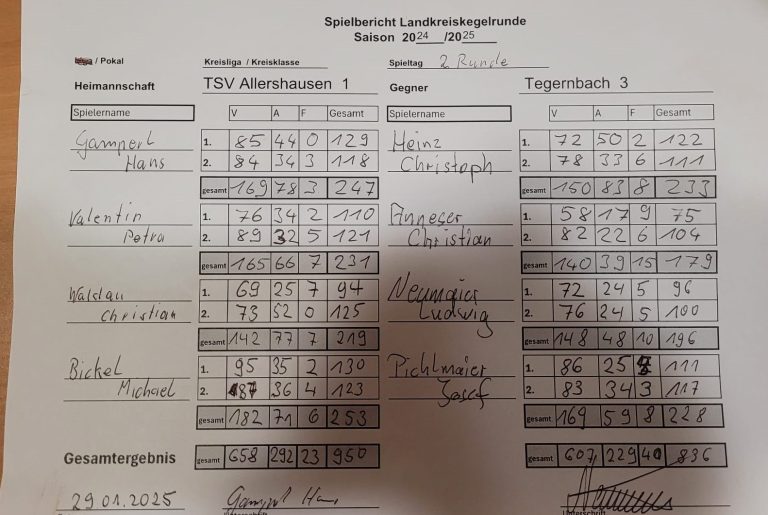 Spielbericht Landkreiskegelrunde
Saison 2024/2025
/ Pokal Kreisliga / Kreisklasse Spieltag 2 Runde
Heimmannschaft TSV Allershausen 1 Gegner Tegernbach 3
Spielername V A F Gesamt Spielername V A F Gesamt
Gamperl 1. 85 44 0 129 Heinz 1. 72 50 2 122
Hans 2. 84 34 3 118 Christoph 2. 78 33 6 111
gesamt 169 78 3 247 gesamt 150 83 8 233
Valentin 1. 76 34 2 110 Anneser 1. 58 17 9 75
Petra 2. 89 32 5 121 Christian 2. 82 22 6 104
gesamt 165 66 7 231 gesamt 140 39 15 179
Walstau 1. 69 25 7 94 Neumaier 1. 72 24 5 96
Christian 2. 73 52 0 125 Ludwig 2. 76 24 5 100
gesamt 142 77 7 219 gesamt 148 48 10 196
Bickel 1. 95 35 2 130 Pichlmaier 1. 86 25 111
Michael 2. 87 36 4 123 Josef 2. 83 34 3 117
gesamt 182 71 6 253 gesamt 169 59 8 228
Gesamtergebnis gesamt 658 292 23 950 gesamt 607 229 40 836
29.01.2025 Gamperl Hans
Unterschrift